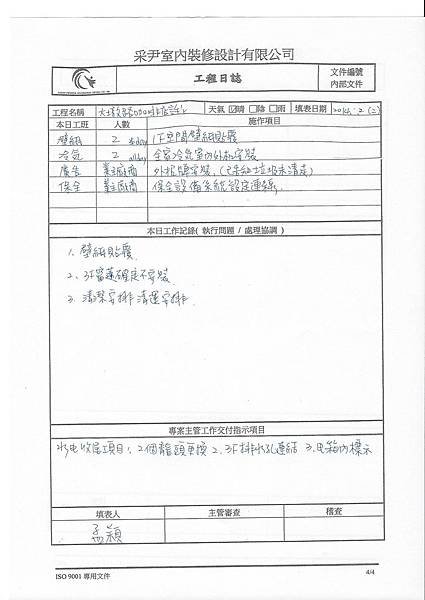 采尹室內裝修設計有限公司
工程日誌
文件編號
內部文件
工程名稱
天氣 ☑晴 □陰 □雨 填表日期 2014.2.(二)
本日工班 人數 施作項目
壁紙 2 1F空間壁紙貼覆
冷氣 2 allday 全室冷氣室內外机安裝
廣告 業主廠商 外招牌安裝
保全 業主廠商 保全設備系統設定連線
本日工作記錄( 執行問題 / 處理協調 )
1. 壁紙貼覆
2、3F窗簾確定不安裝
3. 清潔安排 清運安排
專案主管工作交付指示項目
水电收尾項目:1. 2個龍頭更換 2、3F排水孔連結 3.电箱內標示
填表人 主管審查 稽查
孟穎
ISO 9001 專用文件
4/4